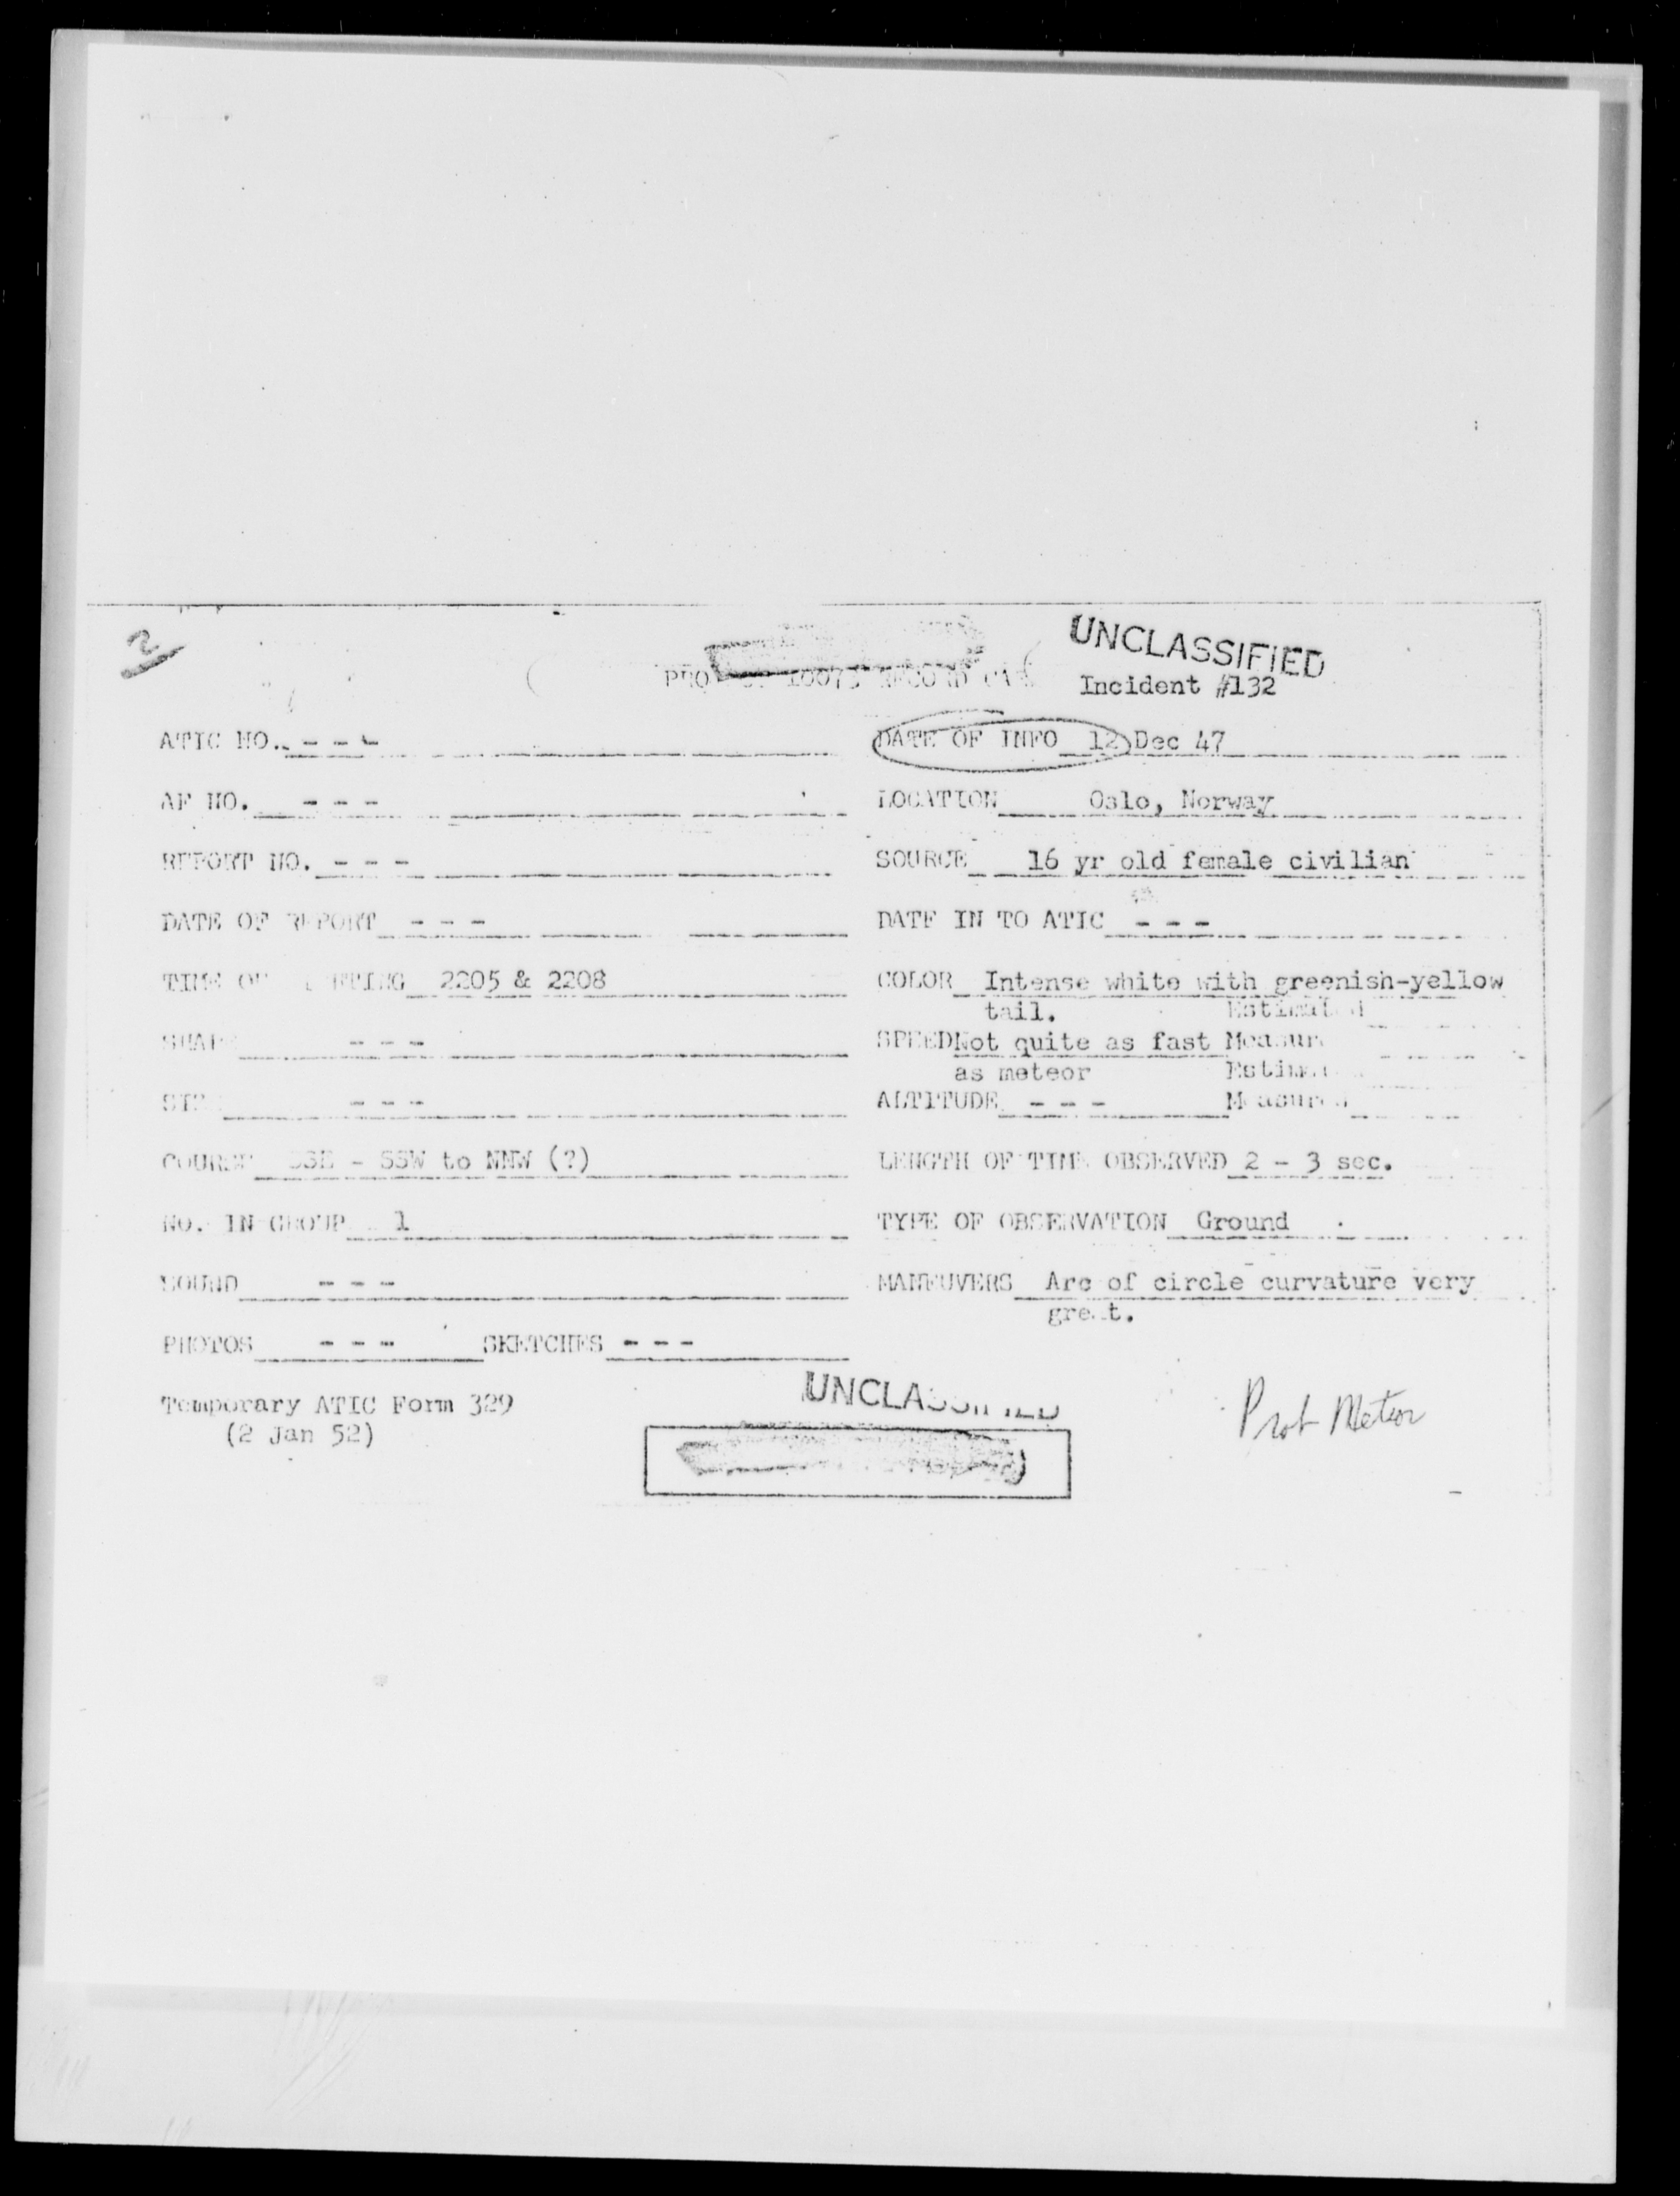 2
UNCLASSIFIED
10073 RECORD
Incident #132
ATIC NO. - - -
DATE OF INFO 12 Dec 47
AF NO. - - -
LOCATION Oslo, Norway
REPORT NO. - - -
SOURCE 16 yr old female civilian
DATE OF REPORT - - -
DATE IN TO ATIC - - -
TIME OF 2205 & 2208
COLOR Intense white with greenish-yellow
tail. Estimated
- - -
SPEED Not quite as fast Measured
as meteor Estimated
- - -
ALTITUDE - - - Measured
COURSE SSE - SSW to NNW (?)
LENGTH OF TIME OBSERVED 2 - 3 sec.
NO. IN GROUP 1
TYPE OF OBSERVATION Ground
SOUND - - -
MANEUVERS Arc of circle curvature very
great.
PHOTOS - - - SKETCHES - - -
UNCLASSIFIED
Temporary ATIC Form 329
(2 Jan 52)
Prob Meteor